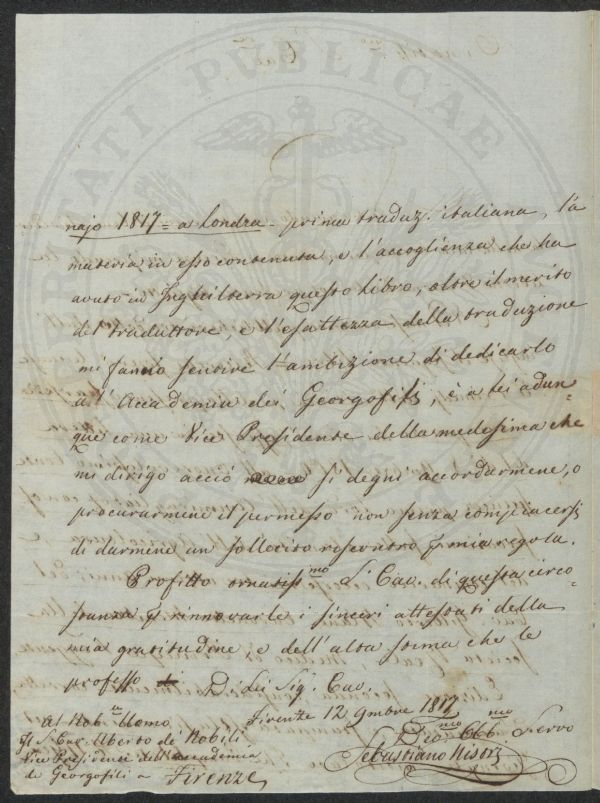 PUBLICAE
najo 1817 = a Londra - prima traduz. italiana, la
materia in esso contenuta, e l'accoglienza che ha
avuto in Inghilterra questo Libro, oltre il merito
del traduttore, e l'esattezza della traduzione
mi fanno sentire l'ambizione di dedicarlo
all'Accademia dei Georgofili, e a lei adun-
que come Vice Presidente della medesima che
mi dirigo acciò si degni accordarmene, o
procurarmene il permesso non senza compiacersi
di darmene un sollecito riscontro p mia regola.
Profitto ornatiss.mo S. Cav. di questa circo-
stanza p rinnovarle i sinceri attestati della
mia gratitudine, e dell'alta stima che le
professo
Di Lei Sig. Cav.
Firenze 12 9mbre 1817
Al Nob. Uomo
Il S. Cav. Uberto de Nobili
Vice Presidente dell'accademia
de Georgofili a Firenze
Dev.mo Obb.mo Servo
Sebastiano Nistri